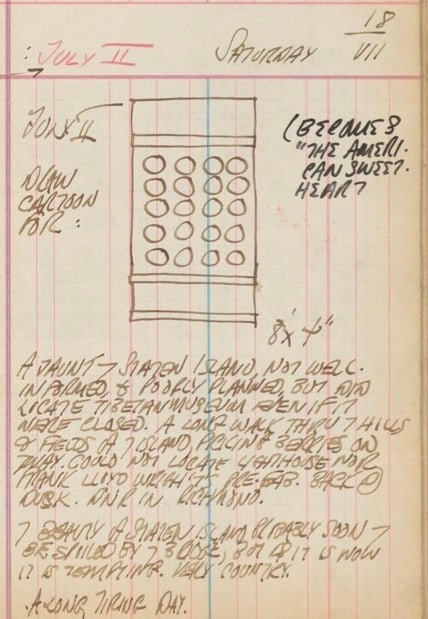 18
: JULY II SATURDAY VII
JULY II
(BECOMES
"THE AMERI-
CAN SWEET-
HEART
DRAW
CARTOON
FOR :
8' X 4"
A JAUNT 7 STATEN ISLAND, NOT WELL-
INFORMED & POORLY PLANNED, BUT DID
LOCATE TIBETAN MUSEUM EVEN IF IT
WERE CLOSED. A LONG WALK THRU 7 HILLS
& FIELDS OF 7 ISLAND, PICKING BERRIES ON
7 WAY. COULD NOT LOCATE LIGHTHOUSE NOR
FRANK LLOYD WRIGHT'S PRE-FAB. BACK @
DUSK. DINR IN RICHMOND.
7 BEAUTY OF STATEN ISLAND PROBABLY SOON 7
BE SPOILED BY 7 BRIDGE, BUT AS IT IS NOW
IT IS TEMPTING. VERY COUNTRY.
A LONG TIRING DAY.